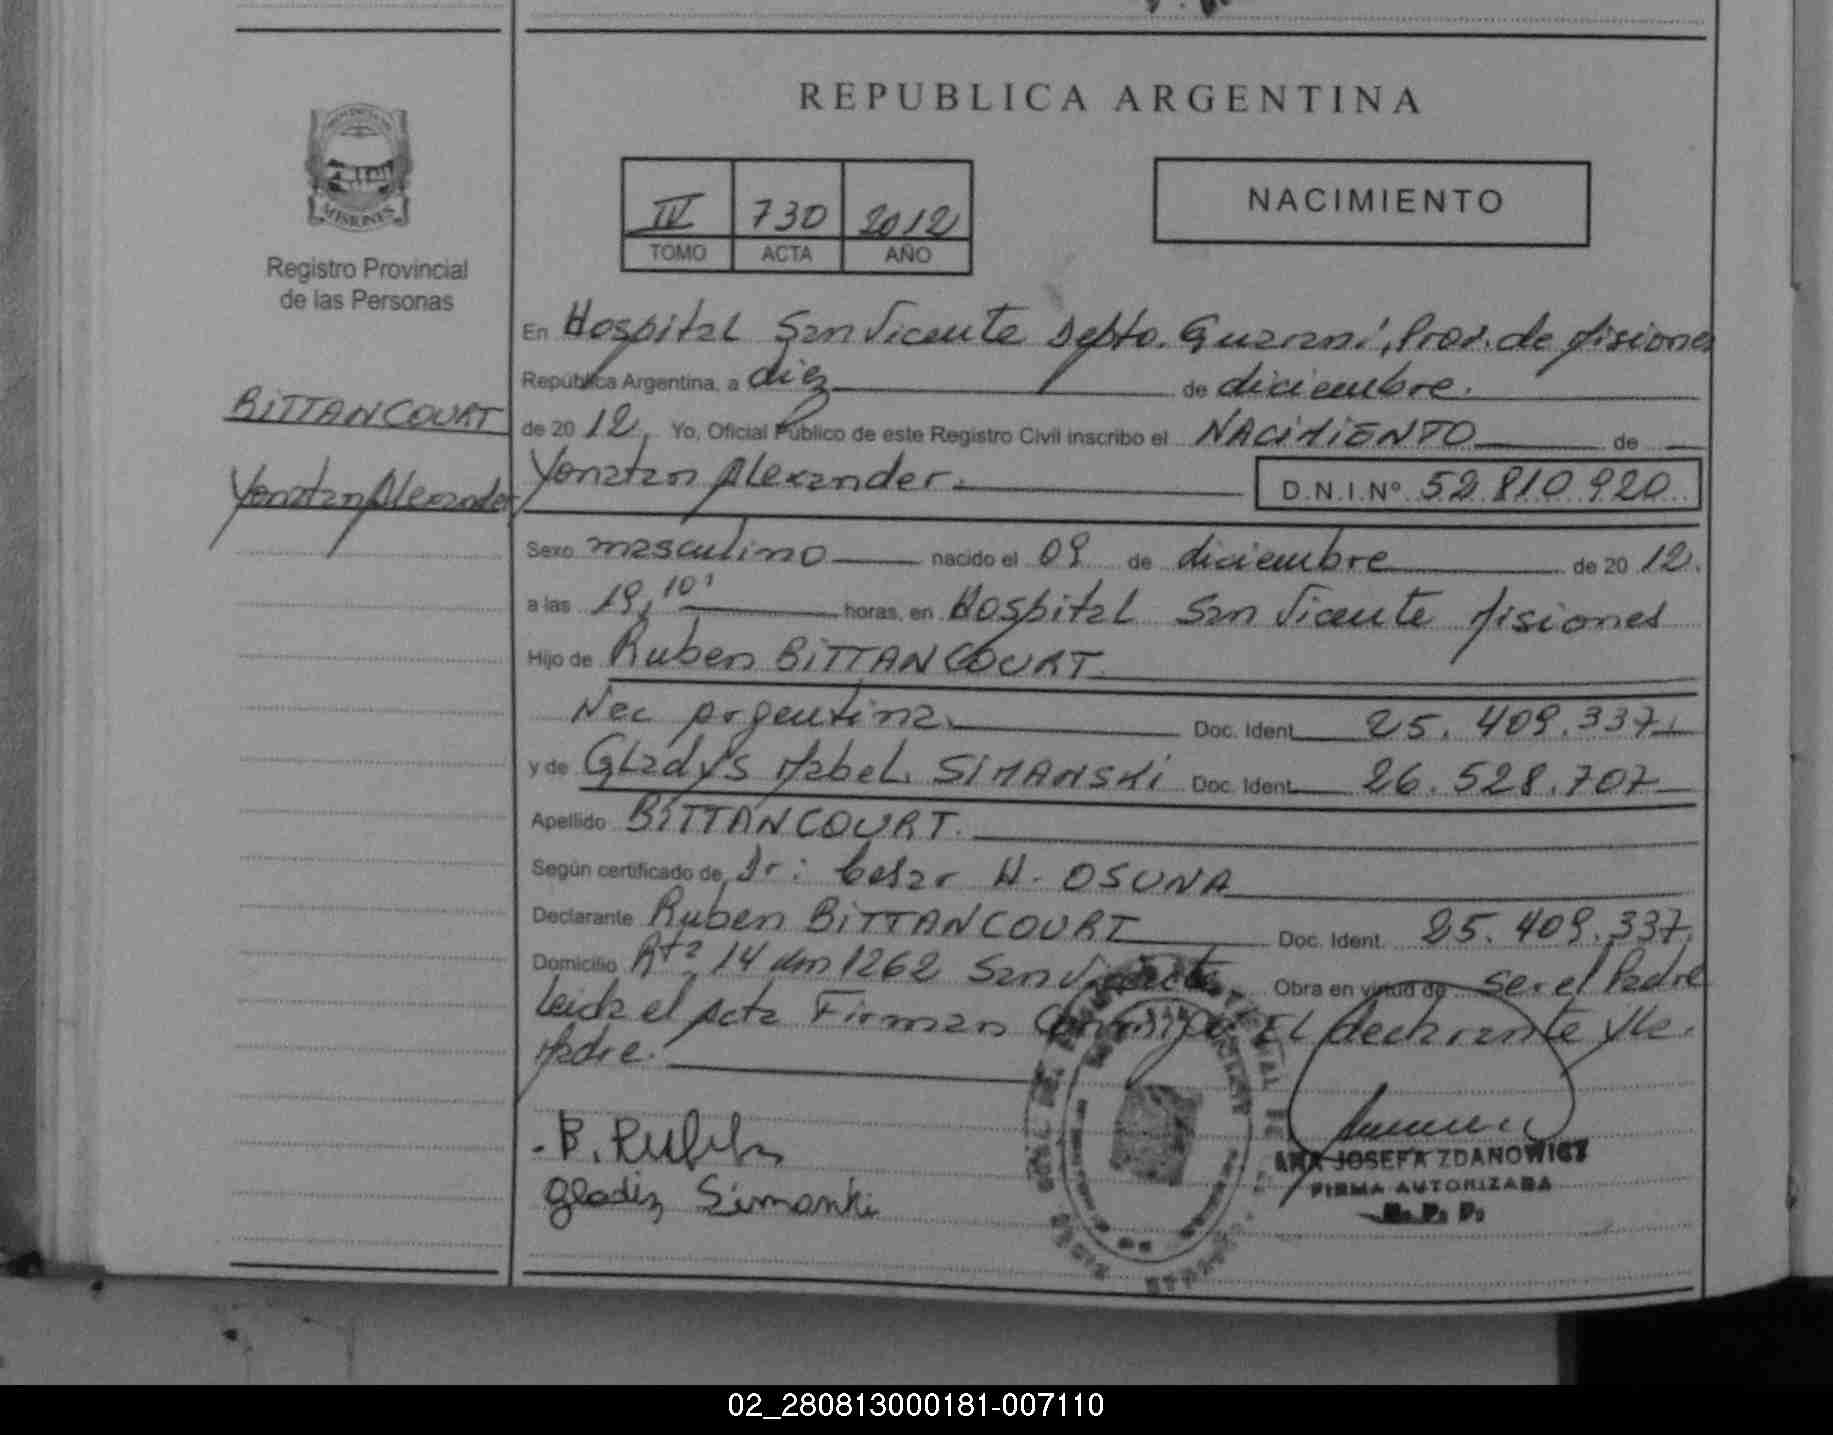 REPUBLICA ARGENTINA
MISIONES
Registro Provincial
de las Personas
IV 730 2012
TOMO ACTA AÑO
NACIMIENTO
BITTANCOURT
Yonatan Alexander
En Hospital San Vicente Depto. Guaraní, Prov. de Misiones
República Argentina, a diez de diciembre.
de 2012, Yo, Oficial Público de este Registro Civil inscribo el NACIMIENTO de
Yonatan Alexander. D.N.I.Nº 52.810.920
Sexo masculino nacido el 09 de diciembre de 2012.
a las 19,10' horas, en Hospital San Vicente Misiones
Hijo de Ruben BITTANCOURT.
Nac Argentina. Doc. Ident. 25.409.337.
y de Gladys Mabel SIMANSKI Doc. Ident. 26.528.707
Apellido BITTANCOURT.
Según certificado de Dr: Cesar H. OSUNA
Declarante Ruben BITTANCOURT Doc. Ident. 25.409.337.
Domicilio Rta 14 km 1262 San Vicente Obra en virtud de ser el Padre
Leida el Acta Firman Conmigo EL declarante y la
Madre.
B. Ruben
Gladiz Simanki
ANA JOSEFA ZDANOWICZ
FIRMA AUTORIZADA
R. P. P.
02_280813000181-007110